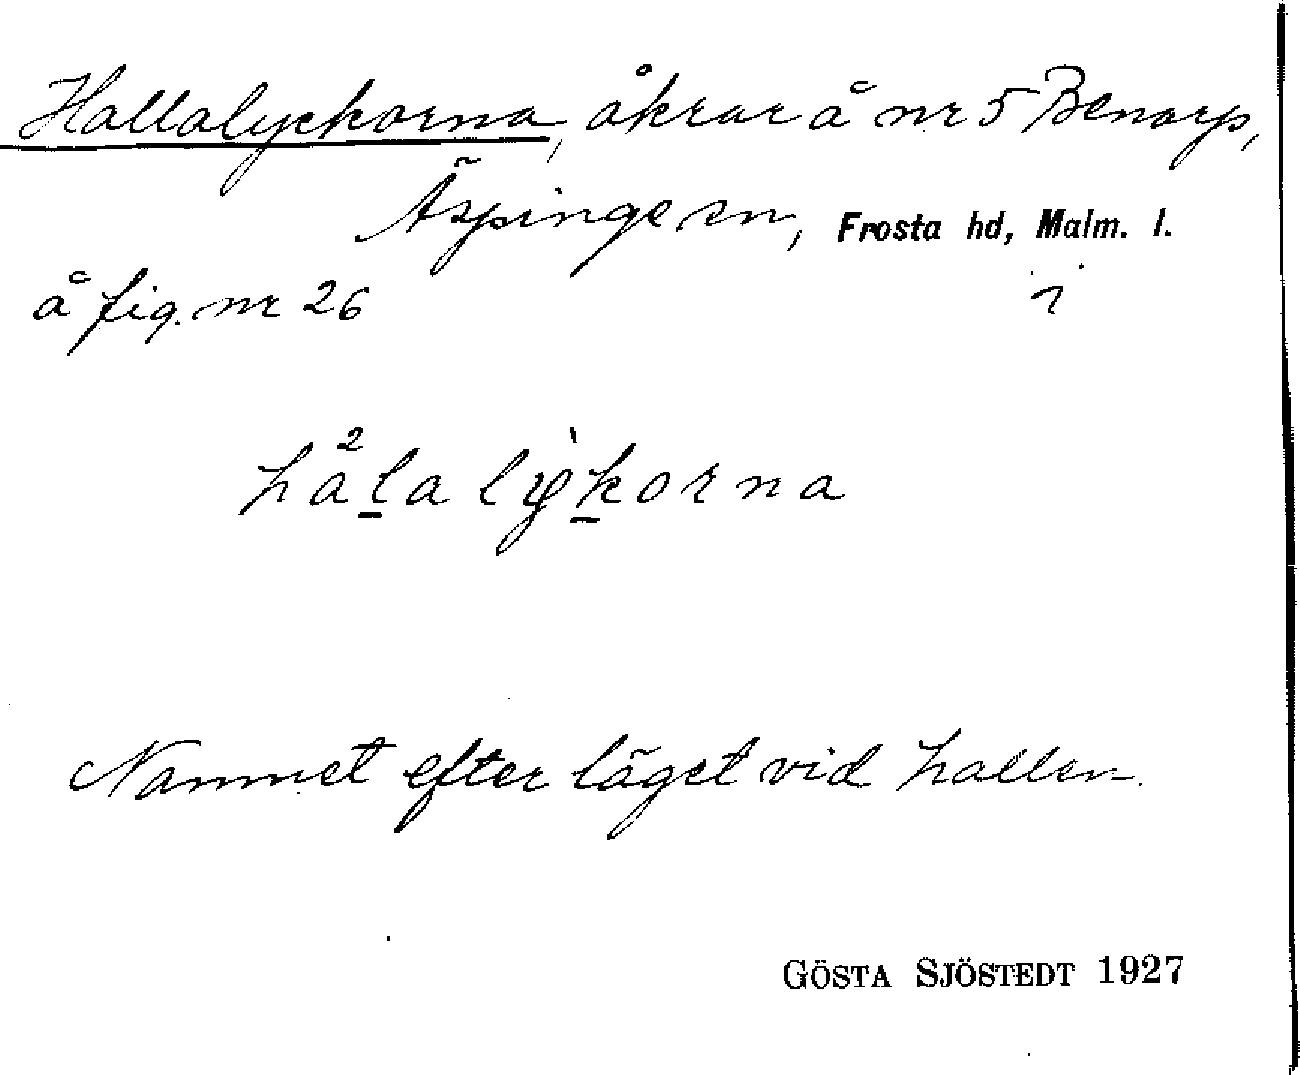 Hallalyckorna, åkrar å nr 5 Benarp,
Äspinge sn, Frosta hd, Malm. l.
å fig. nr 26
hålalykorna
Namnet efter läget vid hallen.
GÖSTA SJÖSTEDT 1927